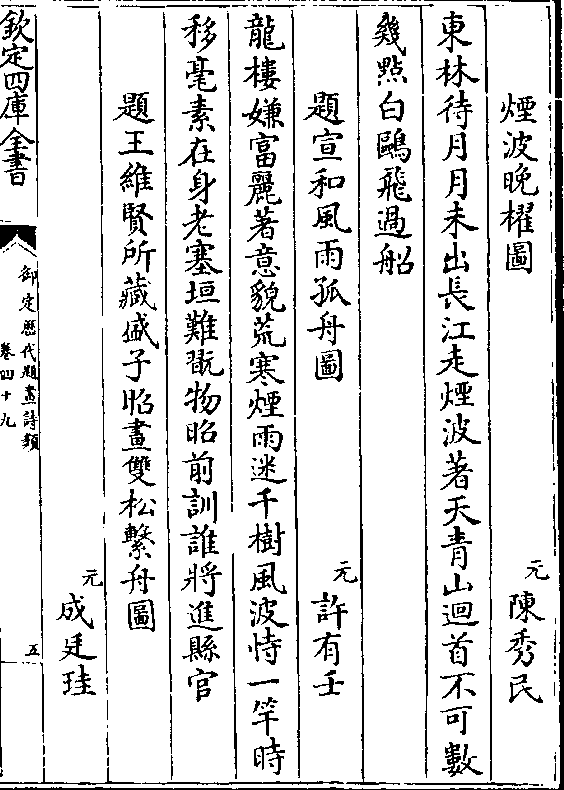 煙波晚櫂圖
元 陳秀民
東林待月月未出長江走煙波著天青山迴首不可數
幾點白鷗飛過船
題宣和風雨孤舟圖
元 許有壬
龍樓嫌富麗著意貌荒寒煙雨迷千樹風波恃一竿時
移毫素在身老塞垣難翫物昭前訓誰將進縣官
題王維賢所藏盛子昭畫雙松繫舟圖
元 成廷珪
欽定四庫全書
御定歷代題畫詩類
卷四十九
五